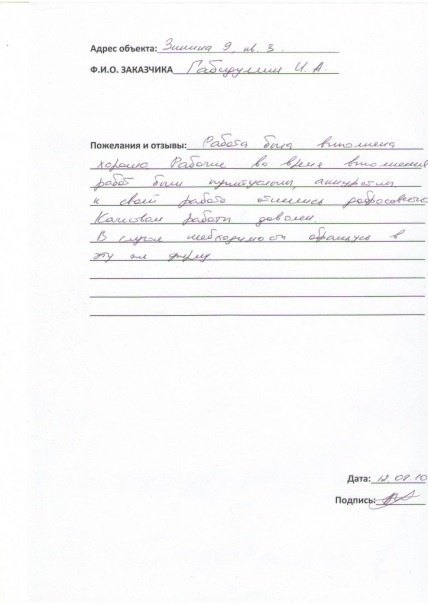 Адрес объекта: Зинина 9, кв. 3.
Ф.И.О. ЗАКАЗЧИКА Габидуллин И. А.
Пожелания и отзывы: Работа была выполнена
хорошо. Рабочие во время выполнения
работ были пунктуальны, аккуратны
к своей работе отнеслись добросовестно
Качеством работы доволен.
В случае необходимости обращусь в
эту же фирму
Дата: 12.08.10
Подпись: